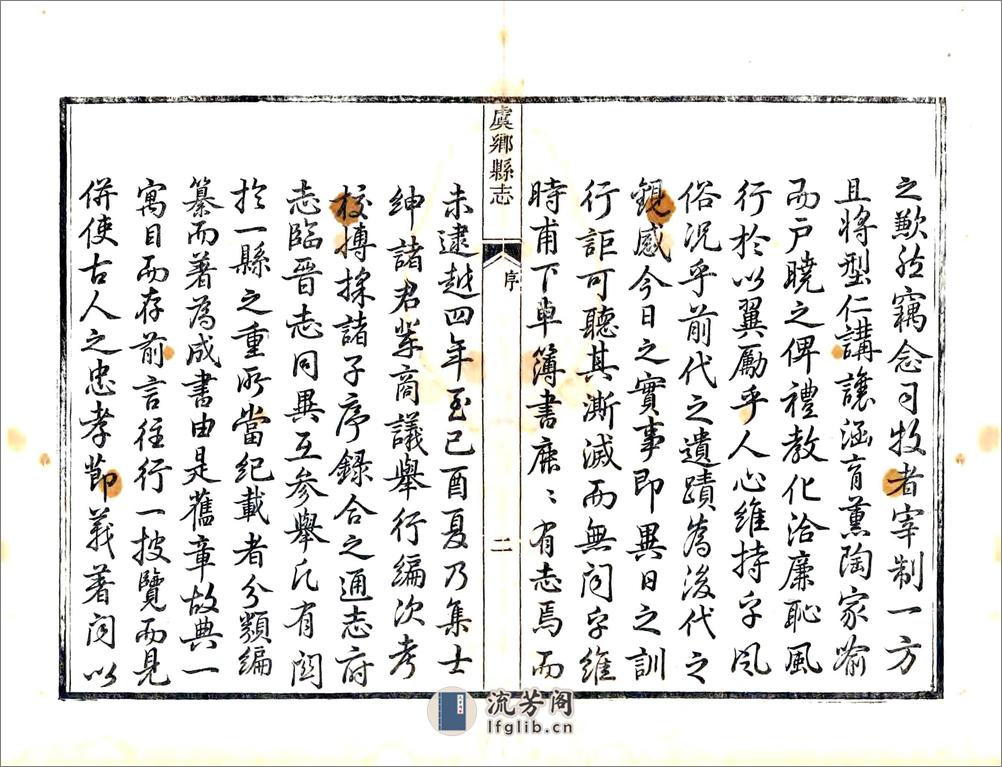 之歎然竊念司牧者宰制一方
且將型仁講讓涵育薰陶家喻
而戶曉之俾禮教化洽廉恥風
行於以翼勵乎人心維持乎風
俗況乎前代之遺蹟為後代之
觀感今日之實事即異日之訓
行詎可聽其漸滅而無聞乎維
時甫下車簿書鹿鹿有志焉而
虞鄉縣志
序
二
未逮越四年至己酉夏乃集士
紳諸君業商議舉行編次考
校搏採諸子序錄合之通志府
志臨晉志同異互參舉凡有關
於一縣之重所當紀載者分類編
纂而著為成書由是舊章故典一
寓目而存前言往行一披覽而見
併使古人之忠孝節義著聞以
流芳阁
lfglib.cn